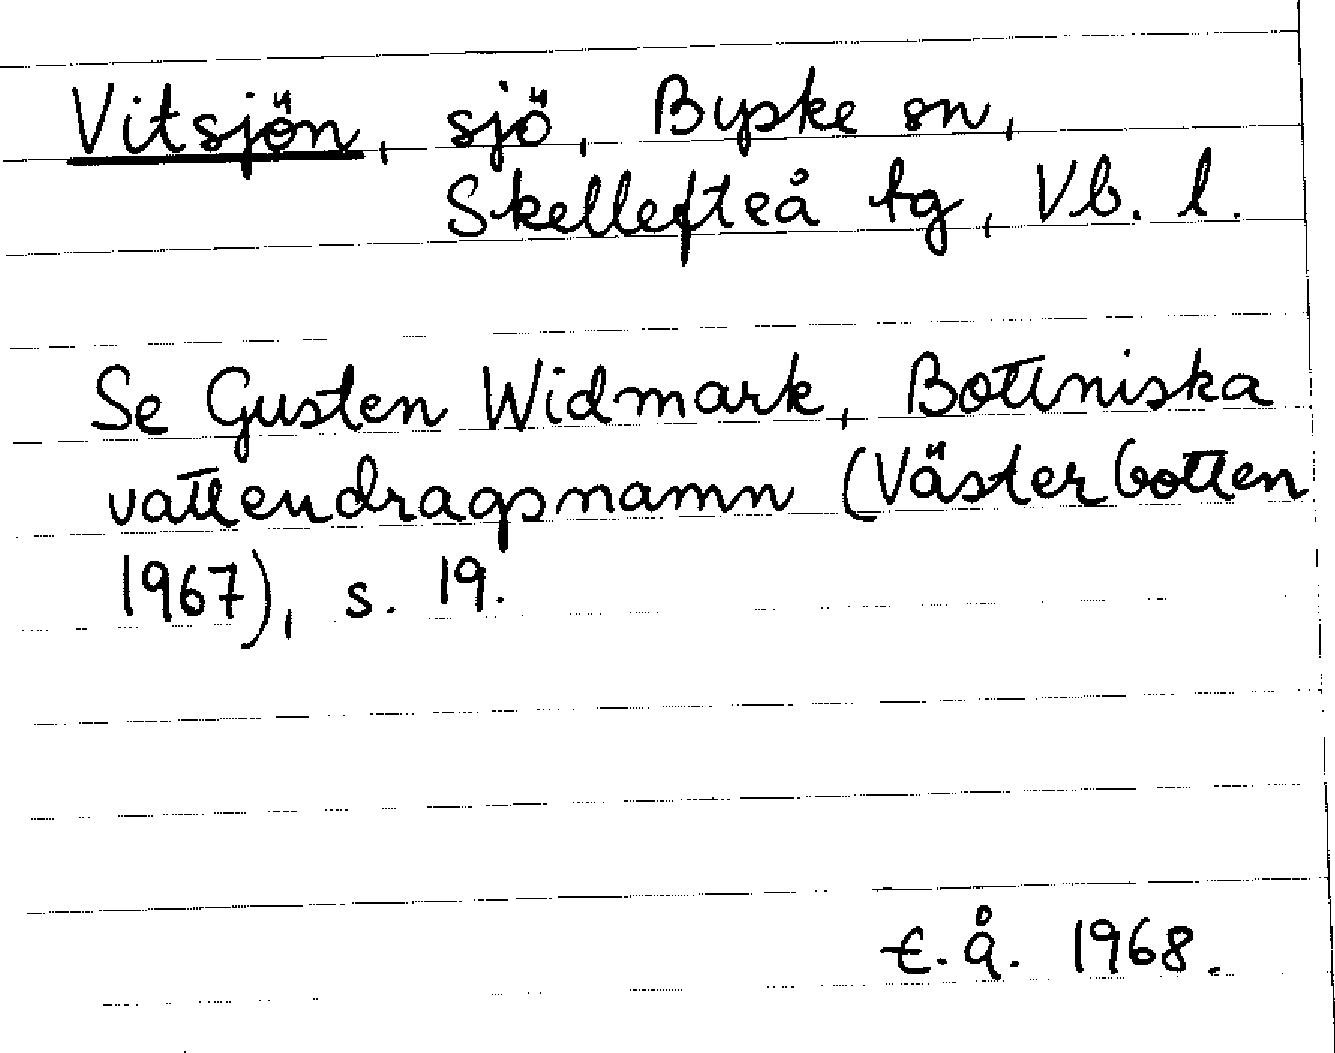 Vitsjön, sjö, Byske sn,
Skellefteå tg, Vb. l.
Se Gusten Widmark, Bottniska
vattendragsnamn (Västerbotten
1967), s. 19.
E.Å. 1968.